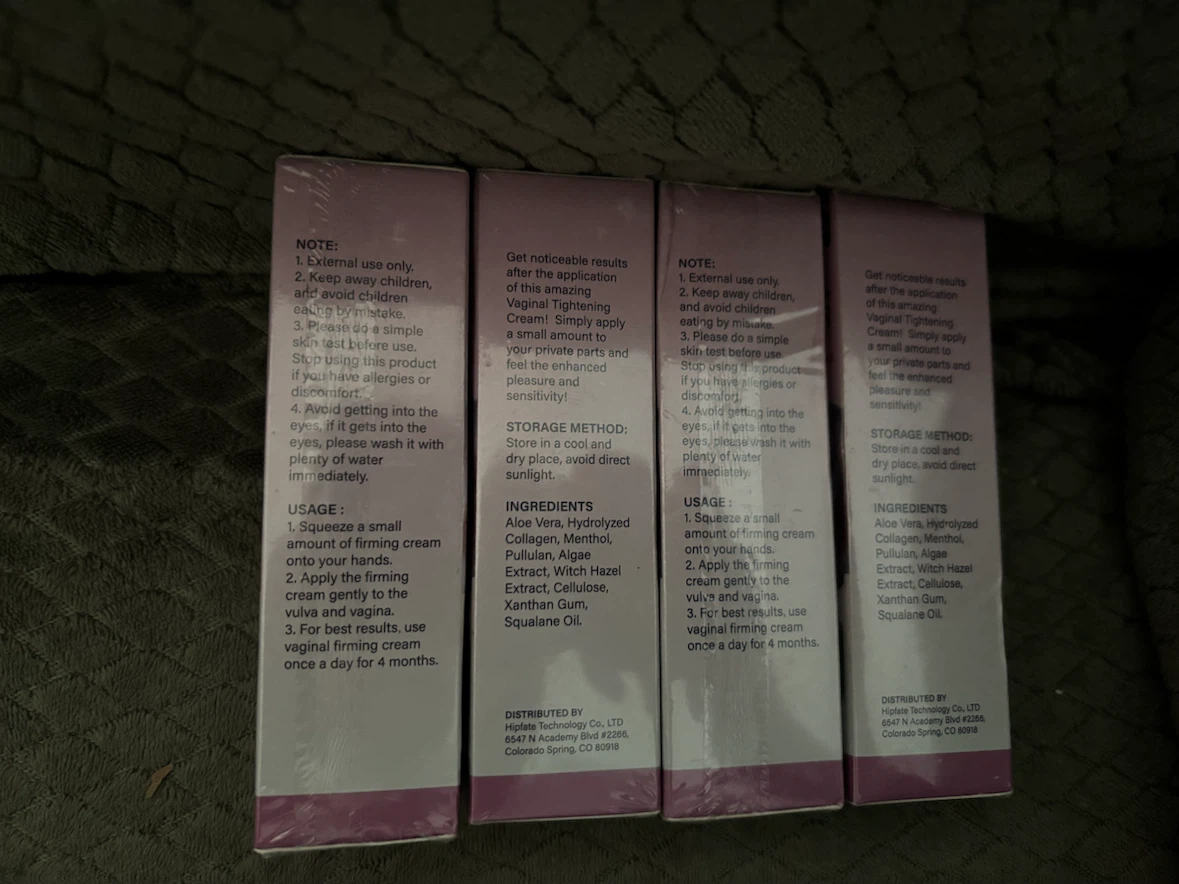 NOTE:
1. External use only.
2. Keep away children,
and avoid children
eating by mistake.
3. Please do a simple
skin test before use.
Stop using this product
if you have allergies or
discomfort.
4. Avoid getting into the
eyes, if it gets into the
eyes, please wash it with
plenty of water
immediately.
USAGE :
1. Squeeze a small
amount of firming cream
onto your hands.
2. Apply the firming
cream gently to the
vulva and vagina.
3. For best results, use
vaginal firming cream
once a day for 4 months.
Get noticeable results
after the application
of this amazing
Vaginal Tightening
Cream! Simply apply
a small amount to
your private parts and
feel the enhanced
pleasure and
sensitivity!
STORAGE METHOD:
Store in a cool and
dry place, avoid direct
sunlight.
INGREDIENTS
Aloe Vera, Hydrolyzed
Collagen, Menthol,
Pullulan, Algae
Extract, Witch Hazel
Extract, Cellulose,
Xanthan Gum,
Squalane Oil.
DISTRIBUTED BY
Hipfate Technology Co., LTD
6547 N Academy Blvd #2266,
Colorado Spring, CO 80918
NOTE:
1. External use only.
2. Keep away children,
and avoid children
eating by mistake.
3. Please do a simple
skin test before use.
Stop using this product
if you have allergies or
discomfort.
4. Avoid getting into the
eyes, if it gets into the
eyes, please wash it with
plenty of water
immediately.
USAGE :
1. Squeeze a small
amount of firming cream
onto your hands.
2. Apply the firming
cream gently to the
vulva and vagina.
3. For best results, use
vaginal firming cream
once a day for 4 months.
Get noticeable results
after the application
of this amazing
Vaginal Tightening
Cream! Simply apply
a small amount to
your private parts and
feel the enhanced
pleasure and
sensitivity!
STORAGE METHOD:
Store in a cool and
dry place, avoid direct
sunlight.
INGREDIENTS
Aloe Vera, Hydrolyzed
Collagen, Menthol,
Pullulan, Algae
Extract, Witch Hazel
Extract, Cellulose,
Xanthan Gum,
Squalane Oil.
DISTRIBUTED BY
Hipfate Technology Co., LTD
6547 N Academy Blvd #2266,
Colorado Spring, CO 80918